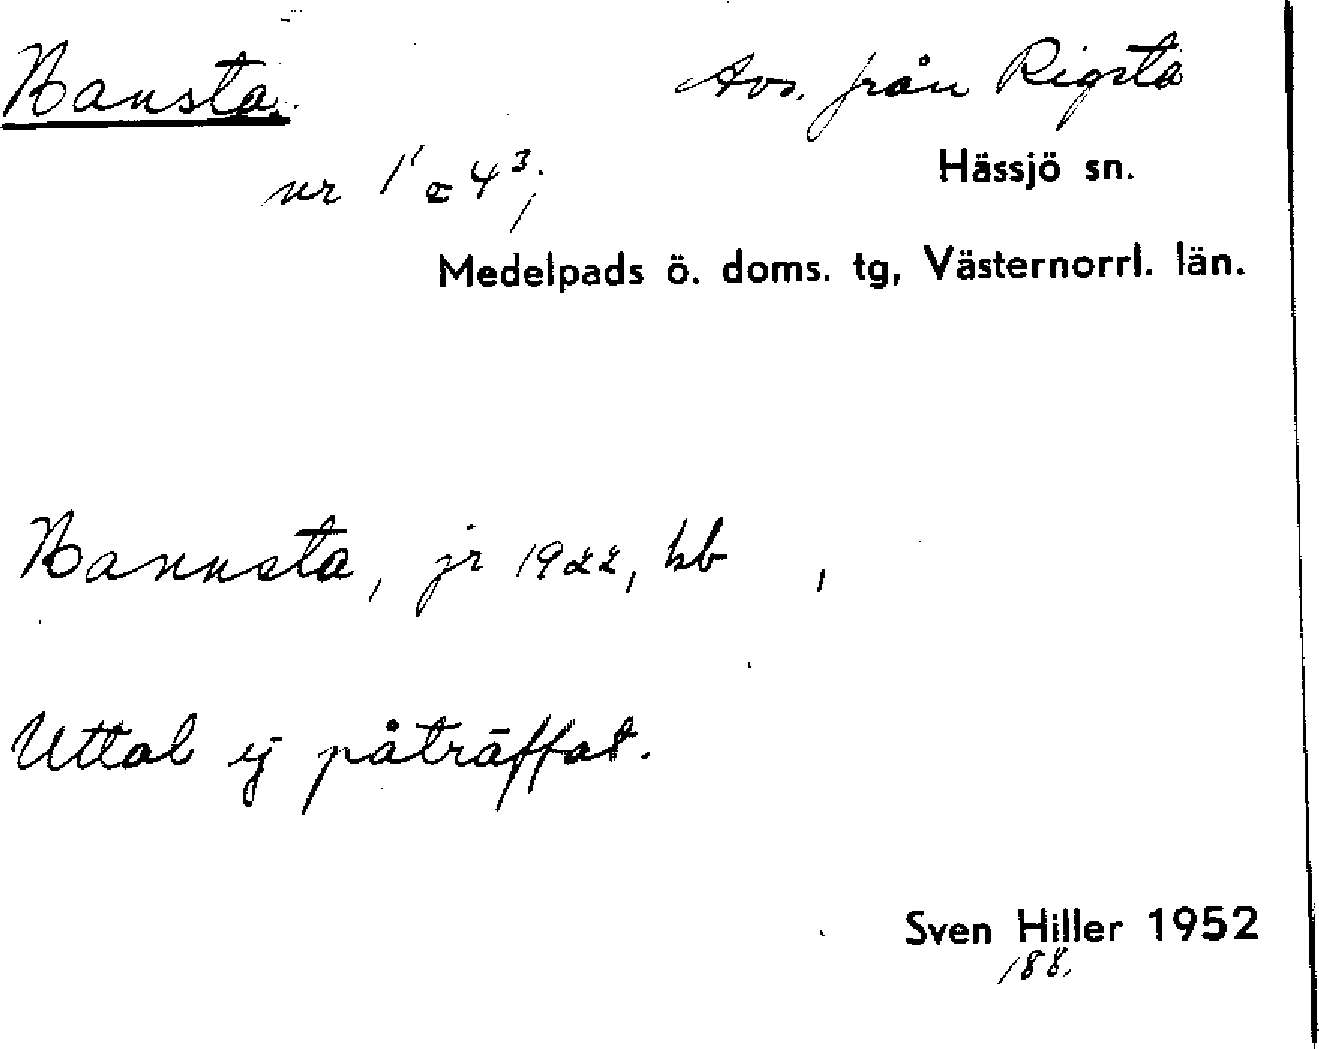 Bansta. Avs. från Rigsta
Hässjö sn.
nr 1¹ & 4³;
Medelpads ö. doms. tg, Västernorrl. län.
Bannsta, jr 1922, hb ,
Uttal ej påträffat.
Sven Hiller 1952
188.